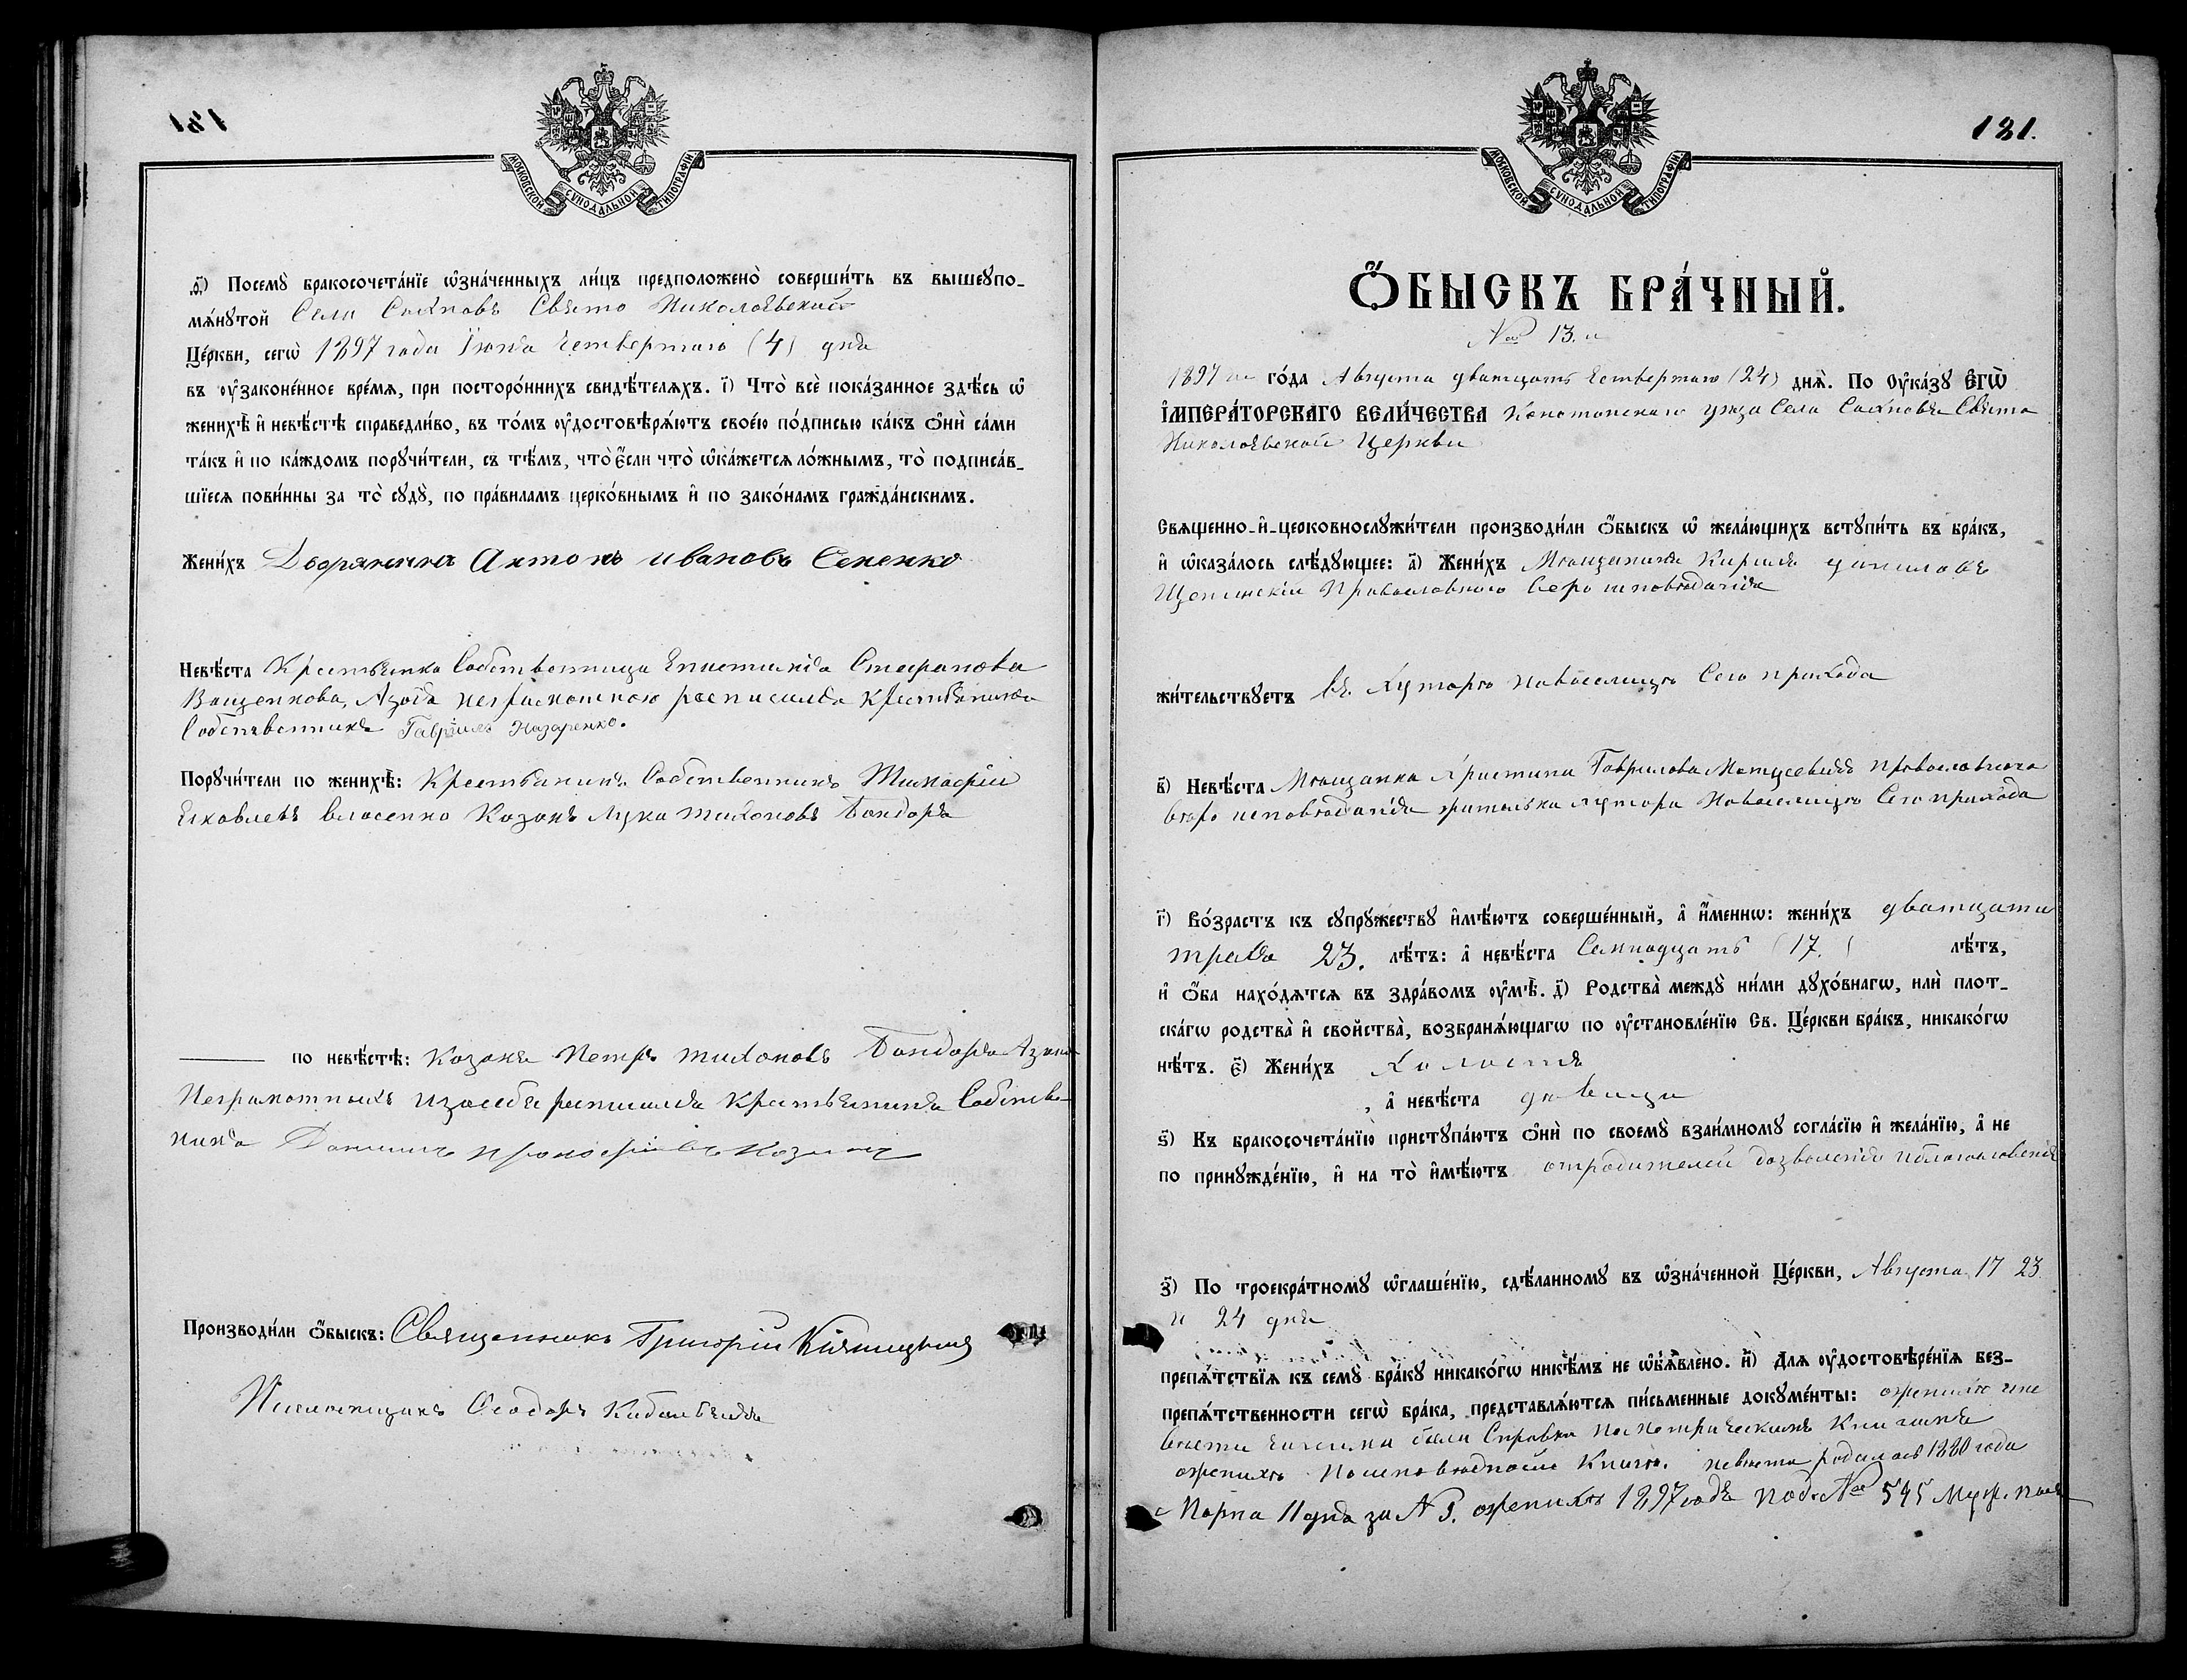 131
МОСКОВСКОЙ СУНОДАЛЬНОЙ ТИПОГРАФІИ
Посемꙋ̀ бракосочета́нїе ѡ҆зна́ченныхъ ли́цъ предположено̀ соверши́ть въ вышеꙋпо-
мѧ́нꙋтой Села Сохновъ Свято Николаевской
Це́ркви, сегѡ̀ 1897 года Іюня четвертаго (4) дня
въ ᲂу҆законе́нное вре́мѧ, при посторо́ннихъ свидѣ́телѧхъ. і҃) Что̀ всѐ пока́занное здѣ́сь ѡ҆
женихѣ̀ и҆ невѣ́стѣ справедли́во, въ то́мъ ᲂу҆достовѣрѧ́ютъ свое́ю по́дписью ка́къ ѻ҆нѝ са́ми
та́къ и҆ по ка́ждомъ порꙋчи́тели, съ тѣ́мъ, что̀ є҆́сли что̀ ѡ҆ка́жетсѧ ло́жнымъ, то̀ подписа́в-
шїесѧ пови́нны за то̀ сꙋдꙋ̀, по пра́виламъ церко́внымъ и҆ по зако́намъ гражда́нскимъ.
Жени́хъ Дворянинъ Антонъ Ивановъ Сененко
Невѣ́ста Крестьянка Собственница Епистимія Стефанова
Ващенкова, Азанея неграмотною росписался крестьянинъ
Собственникъ Гавріилъ Назаренко.
Порꙋчи́тели по женихѣ̀: Крестьянинъ Собственникъ Тимофій
Яковлевъ Власенко Козакъ Лука Тихоновъ Бондарь
по невѣ́стѣ: Козакъ Петръ Тихоновъ Бондарь Аза
Неграмотныхъ и за себя росписался Крестьянинъ Собстве-
никъ Даніилъ Прокофіевъ
Производи́ли ѻ҆́быскъ: Священникъ Григорій
Псаломщикъ Ѳеодоръ
131.
МОСКОВСКОЙ СУНОДАЛЬНОЙ ТИПОГРАФІИ
Ѻ҆́БЫСКЪ БРА́ЧНЫЙ.
№ 13. й
1897 го го́да Августа дватцать четвертаго (24) днѧ̀. По Оу҆ка́зꙋ Є҆ГѠ̀
І҆МПЕРА́ТОРСКАГО ВЕЛИ́ЧЕСТВА Конотопскаго уезда Села Сохновъ Свято
Николаевской Церкви
Свѧщенно-и҆-церковнослꙋжи́тели производи́ли ѻ҆́быскъ ѡ҆ жела́ющихъ встꙋпи́ть въ бра́къ,
и҆ ѡ҆каза́лось слѣ́дꙋющее: а҃) Жени́хъ Мѣщанинъ Кирилъ Даниловъ
Щепинскій Православнаго вероисповѣданія
жи́тельствꙋетъ въ Хуторѣ Новоселицѣ Сего прихода
в҃) Невѣ́ста Мѣщанка Христина Гаврилова Матусевичъ православнаго
вѣроисповѣданія жителька хутора Новоселицы Сего прихода
г҃) Во́зрастъ къ сꙋпрꙋжествꙋ и҆мѣ́ютъ соверше́нный, а҆ и҆́меннѡ: жени́хъ дватцати
трехъ 23. лѣ́тъ: а҆ невѣ́ста Семнадцать (17.) лѣ́тъ,
и҆ ѻ҆́ба нахо́дѧтсѧ въ здра́вомъ ᲂу҆мѣ̀. д҃) Родства̀ междꙋ̀ ни́ми дꙋхо́внагѡ, илѝ плот-
ска́гѡ родства̀ и҆ свойства̀, возбранѧ́ющагѡ по ᲂу҆становле́нїю Св. Це́ркви бра́къ, никако́гѡ
нѣ́тъ. є҃) Жени́хъ Холостъ
, а҆ невѣ́ста девица
ѕ҃) Къ бракосочета́нїю пристꙋпа́ютъ ѻ҆нѝ по своемꙋ̀ взаи́мномꙋ согла́сїю и҆ жела́нїю, а҆ не
по принꙋжде́нїю, и҆ на то̀ и҆мѣ́ютъ отродителей дозволенія иблагословенія
з҃) По троекра́тномꙋ ѡ҆глаше́нїю, сдѣ́ланномꙋ въ ѡ҆зна́ченной Це́ркви, Августа 17 23
и 24 дня
препѧ́тствїѧ къ семꙋ̀ бра́кꙋ никако́гѡ никѣ́мъ не ѡ҆б̾ѧ́влено. и҃) Длѧ ᲂу҆достовѣре́нїѧ без-
препѧ́тственности сегѡ̀ бра́ка, представлѧ́ютсѧ пи́сьменные докꙋме́нты: ожениxѣ ине
вѣсти были Справки Пометрическимъ Книгамъ
оженихѣ поисповѣдной Книгѣ. невѣста родилась 1880 года
Марта 11 дня за № 3. оженихѣ 1897 года под. № 595 муж. пола